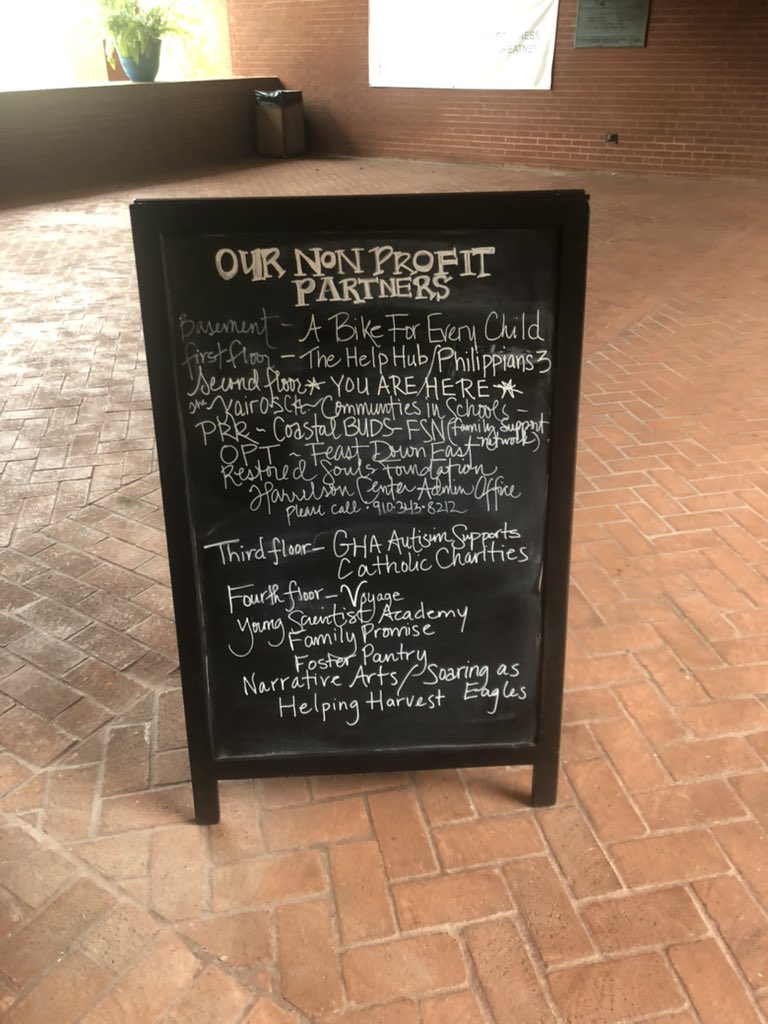 NESS
EATNES
OUR NON PROFIT
PARTNERS
Basement - A Bike For Every Child
first floor - The Help Hub/Philippians 3
Second floor * YOU ARE HERE *
Communties in Schools -
PRR - Coastal BUDS - FSN (family support
network)
OPT - Feast Down East
Restored Souls Foundation
Harrelson Center Admin Office
please call: 910.343.8212
Third floor - GHA Autism Supports
Catholic Charities
Fourth floor - Voyage
Young Scientist Academy
Family Promise
Foster Pantry
Narrative Arts / Soaring as
Helping Harvest Eagles